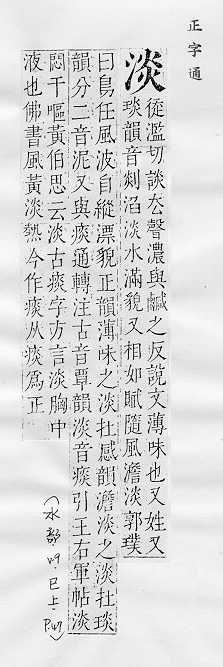 正字通
淡 從濫切談厺聲濃與鹹之反說文薄味也又姓又
琰韻音剡淊淡水滿貌又相如賦隨風澹淡郭璞
曰鳥任風波自縱漂貌正韻薄味之淡扗感韻澹淡之淡扗琰
韻分二音泥又與痰通轉注古音覃韻淡音痰引王右軍帖淡
悶干嘔黃伯思云淡古痰字方言淡胸中
液也佛書風黃淡熱今作痰从痰爲正
(水部 49.巳上. P.47)